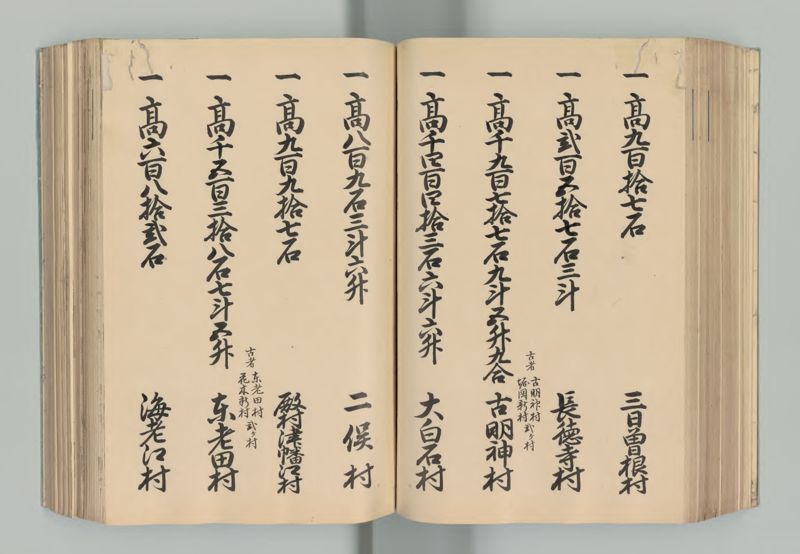 一 高九百拾七石 三日曽根村
一 高弐百五拾七石三斗 長徳寺村
一 高千九百七拾七石九斗五升九合 古明神村
古者 古明神村
新村 弐ヶ村
一 高千四百四拾三石六斗六升 大白石村
一 高八百九石三斗六升 二俣村
一 高九百九拾七石 殿村津幡江村
一 高千五百三拾八石七斗五升 東老田村
古者 東老田村
花木新村 弐ヶ村
一 高六百八拾弐石 海老江村